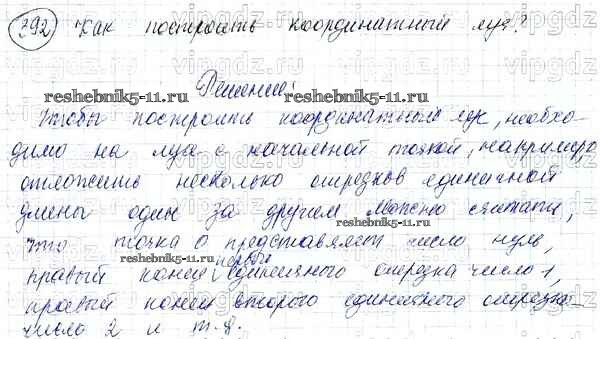 292) Как построить координатный луч?
Решение:
reshebnik5-11.ru reshebnik5-11.ru
Чтобы построить координатный луч, необхо-
димо на луче с начальной точкой, например
отложить несколько отрезков единичной
длины один за другим Можно считать,
что точка О представляет число нуль,
reshebnik5-11.ru первый reshebnik5-11.ru
правый конец единичного отрезка число 1,
правый конец второго единичного отрезка
число 2 и т.д.